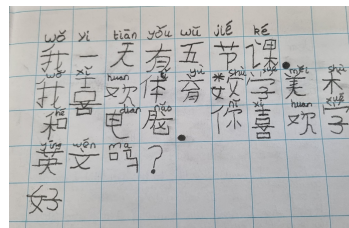 wǒ yi tiān yǒu wǔ jié kè
我一天有五节课.
wǒ xǐ huan yù shù měi shù
我喜欢体育数字美术
hé diàn nǎo nǐ xǐ huan
和电脑.你喜欢字
yīng wén ma
英文吗?
好